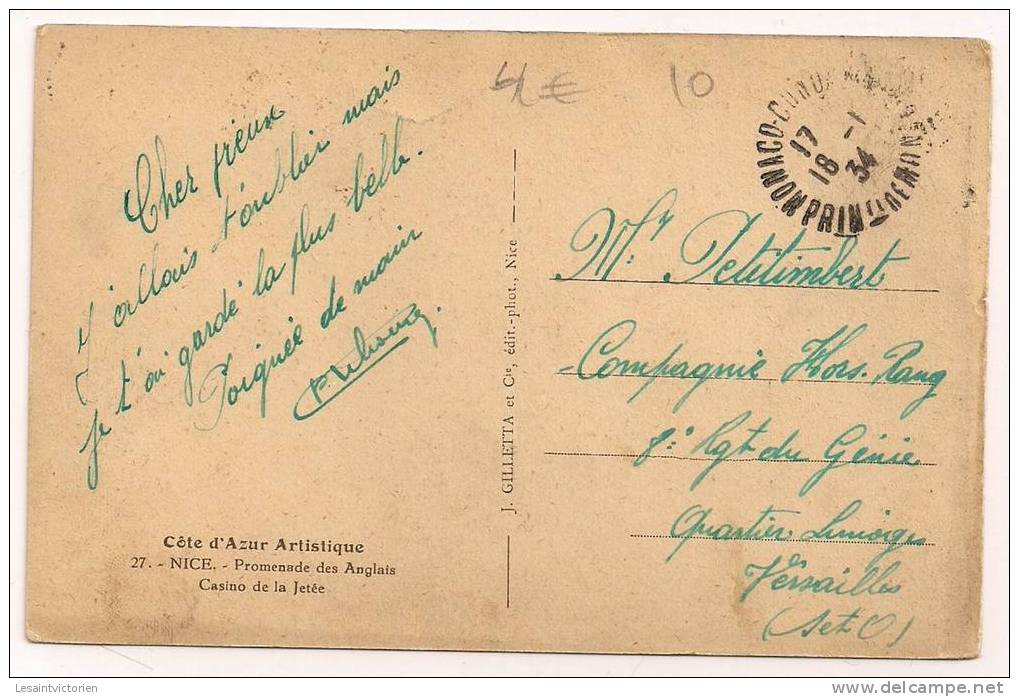 4 € 10
Cher vieux
J'allais t'oublier mais
je t'ai gardé la plus belle.
Poignée de main
J. GILLETTA et Cie, édit.-phot., Nice
MONACO-CONDAMINE
17
18 -1
34
PRINTÉ DE MONACO
Mr. Petitimbert
Compagnie Hors Rang
8e Rgt du Génie
Quartier Limoges
Versailles
(Set O)
Côte d'Azur Artistique
27. - NICE. - Promenade des Anglais
Casino de la Jetée
Lesaintvictorien
delcampe.net